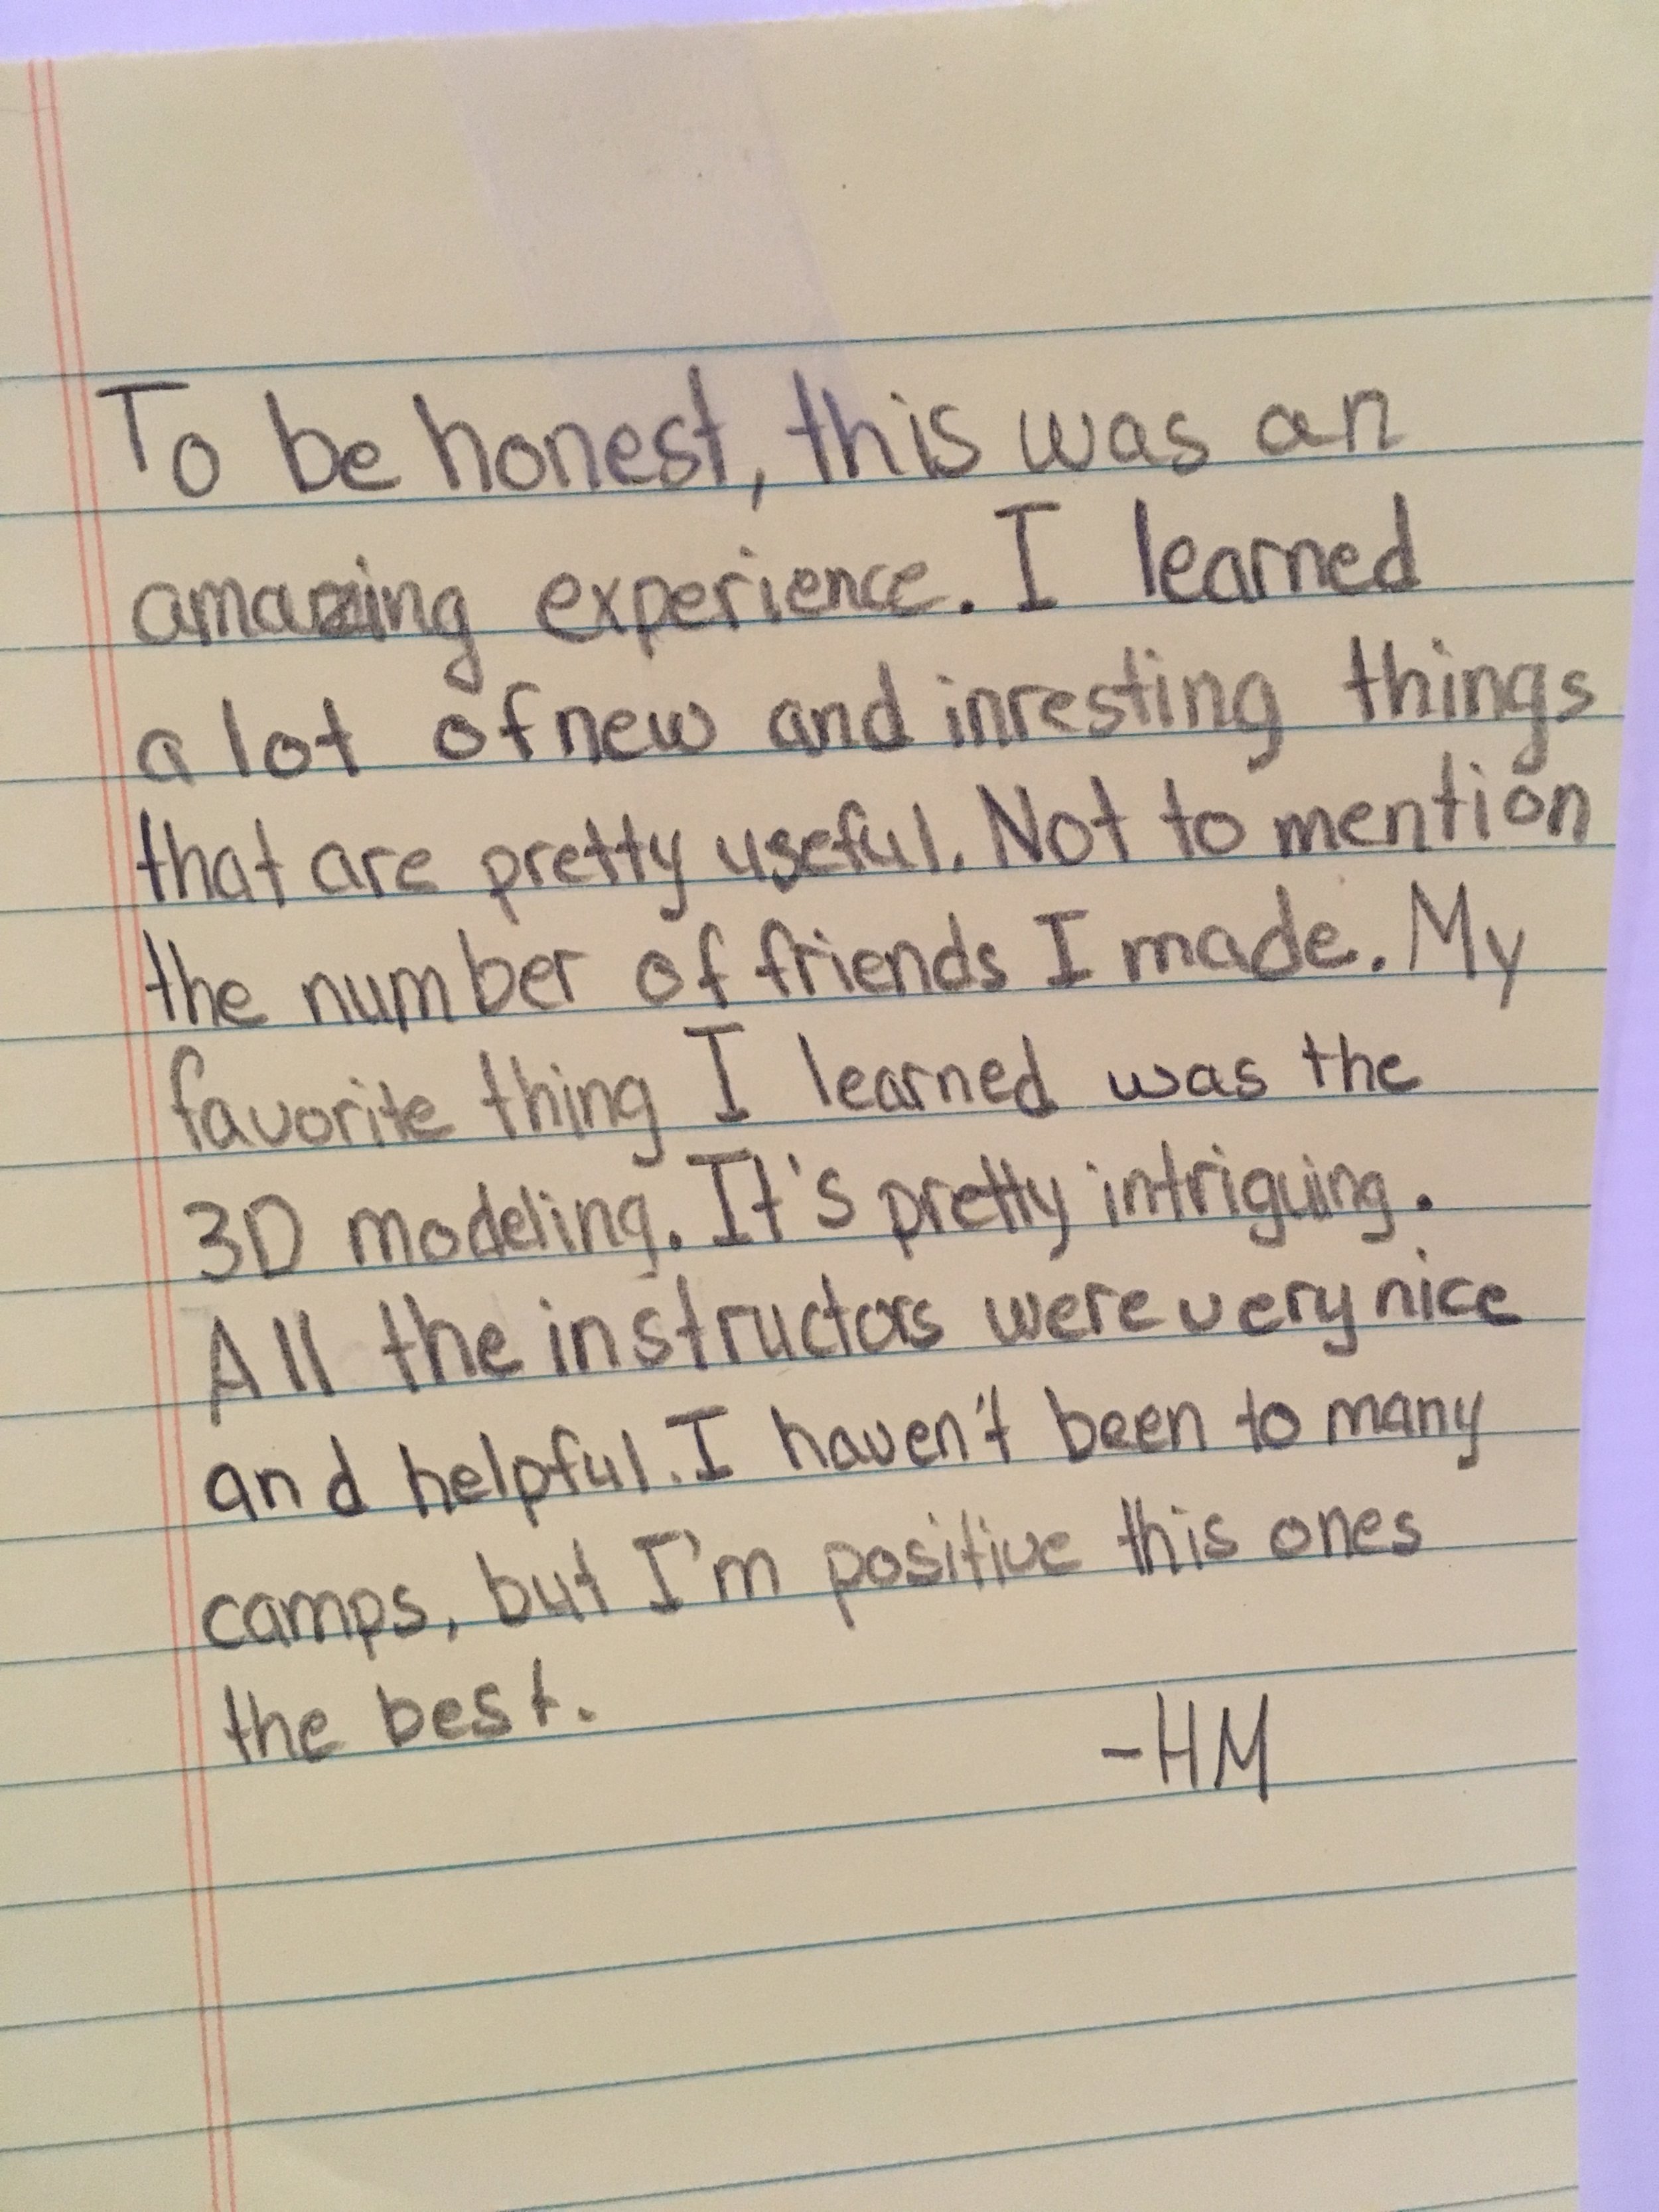 To be honest, this was an
amazing experience. I learned
a lot of new and inresting things
that are pretty useful. Not to mention
the number of friends I made. My
favorite thing I learned was the
3D modeling. It's pretty intriguing.
All the instructors were very nice
and helpful. I haven't been to many
camps, but I'm positive this ones
the best.
-HM